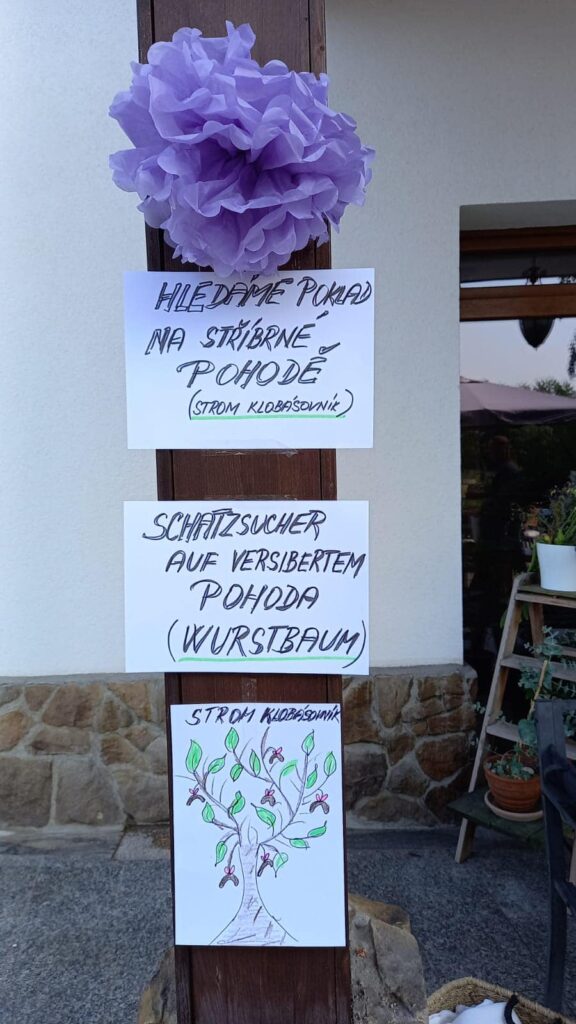 HLEDÁME POKLAD
NA STŘÍBRNÉ
POHODĚ
(STROM KLOBÁSOVNÍK)
SCHATZSUCHER
AUF VERSIBERTEM
POHODA
(WURSTBAUM)
STROM KLOBÁSOVNÍK